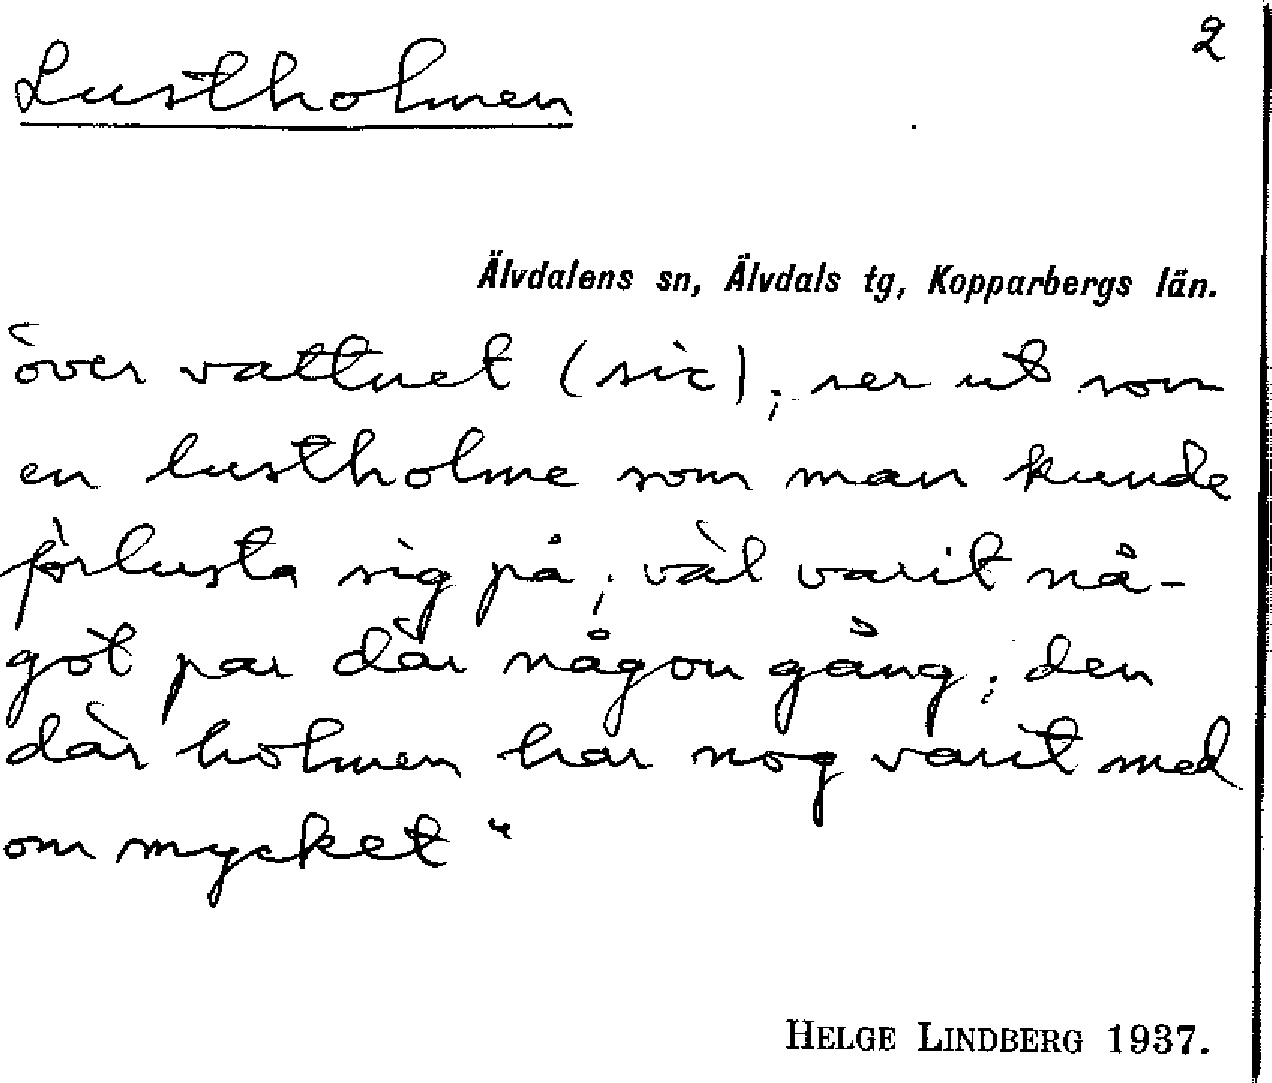 2
Lustholmen
Älvdalens sn, Älvdals tg, Kopparbergs län.
över vattnet (sic); ser ut som
en lustholme som man kunde
förlusta sig på; väl varit nå-
got par där någon gång; den
där holmen har nog varit med
om mycket"
HELGE LINDBERG 1937.